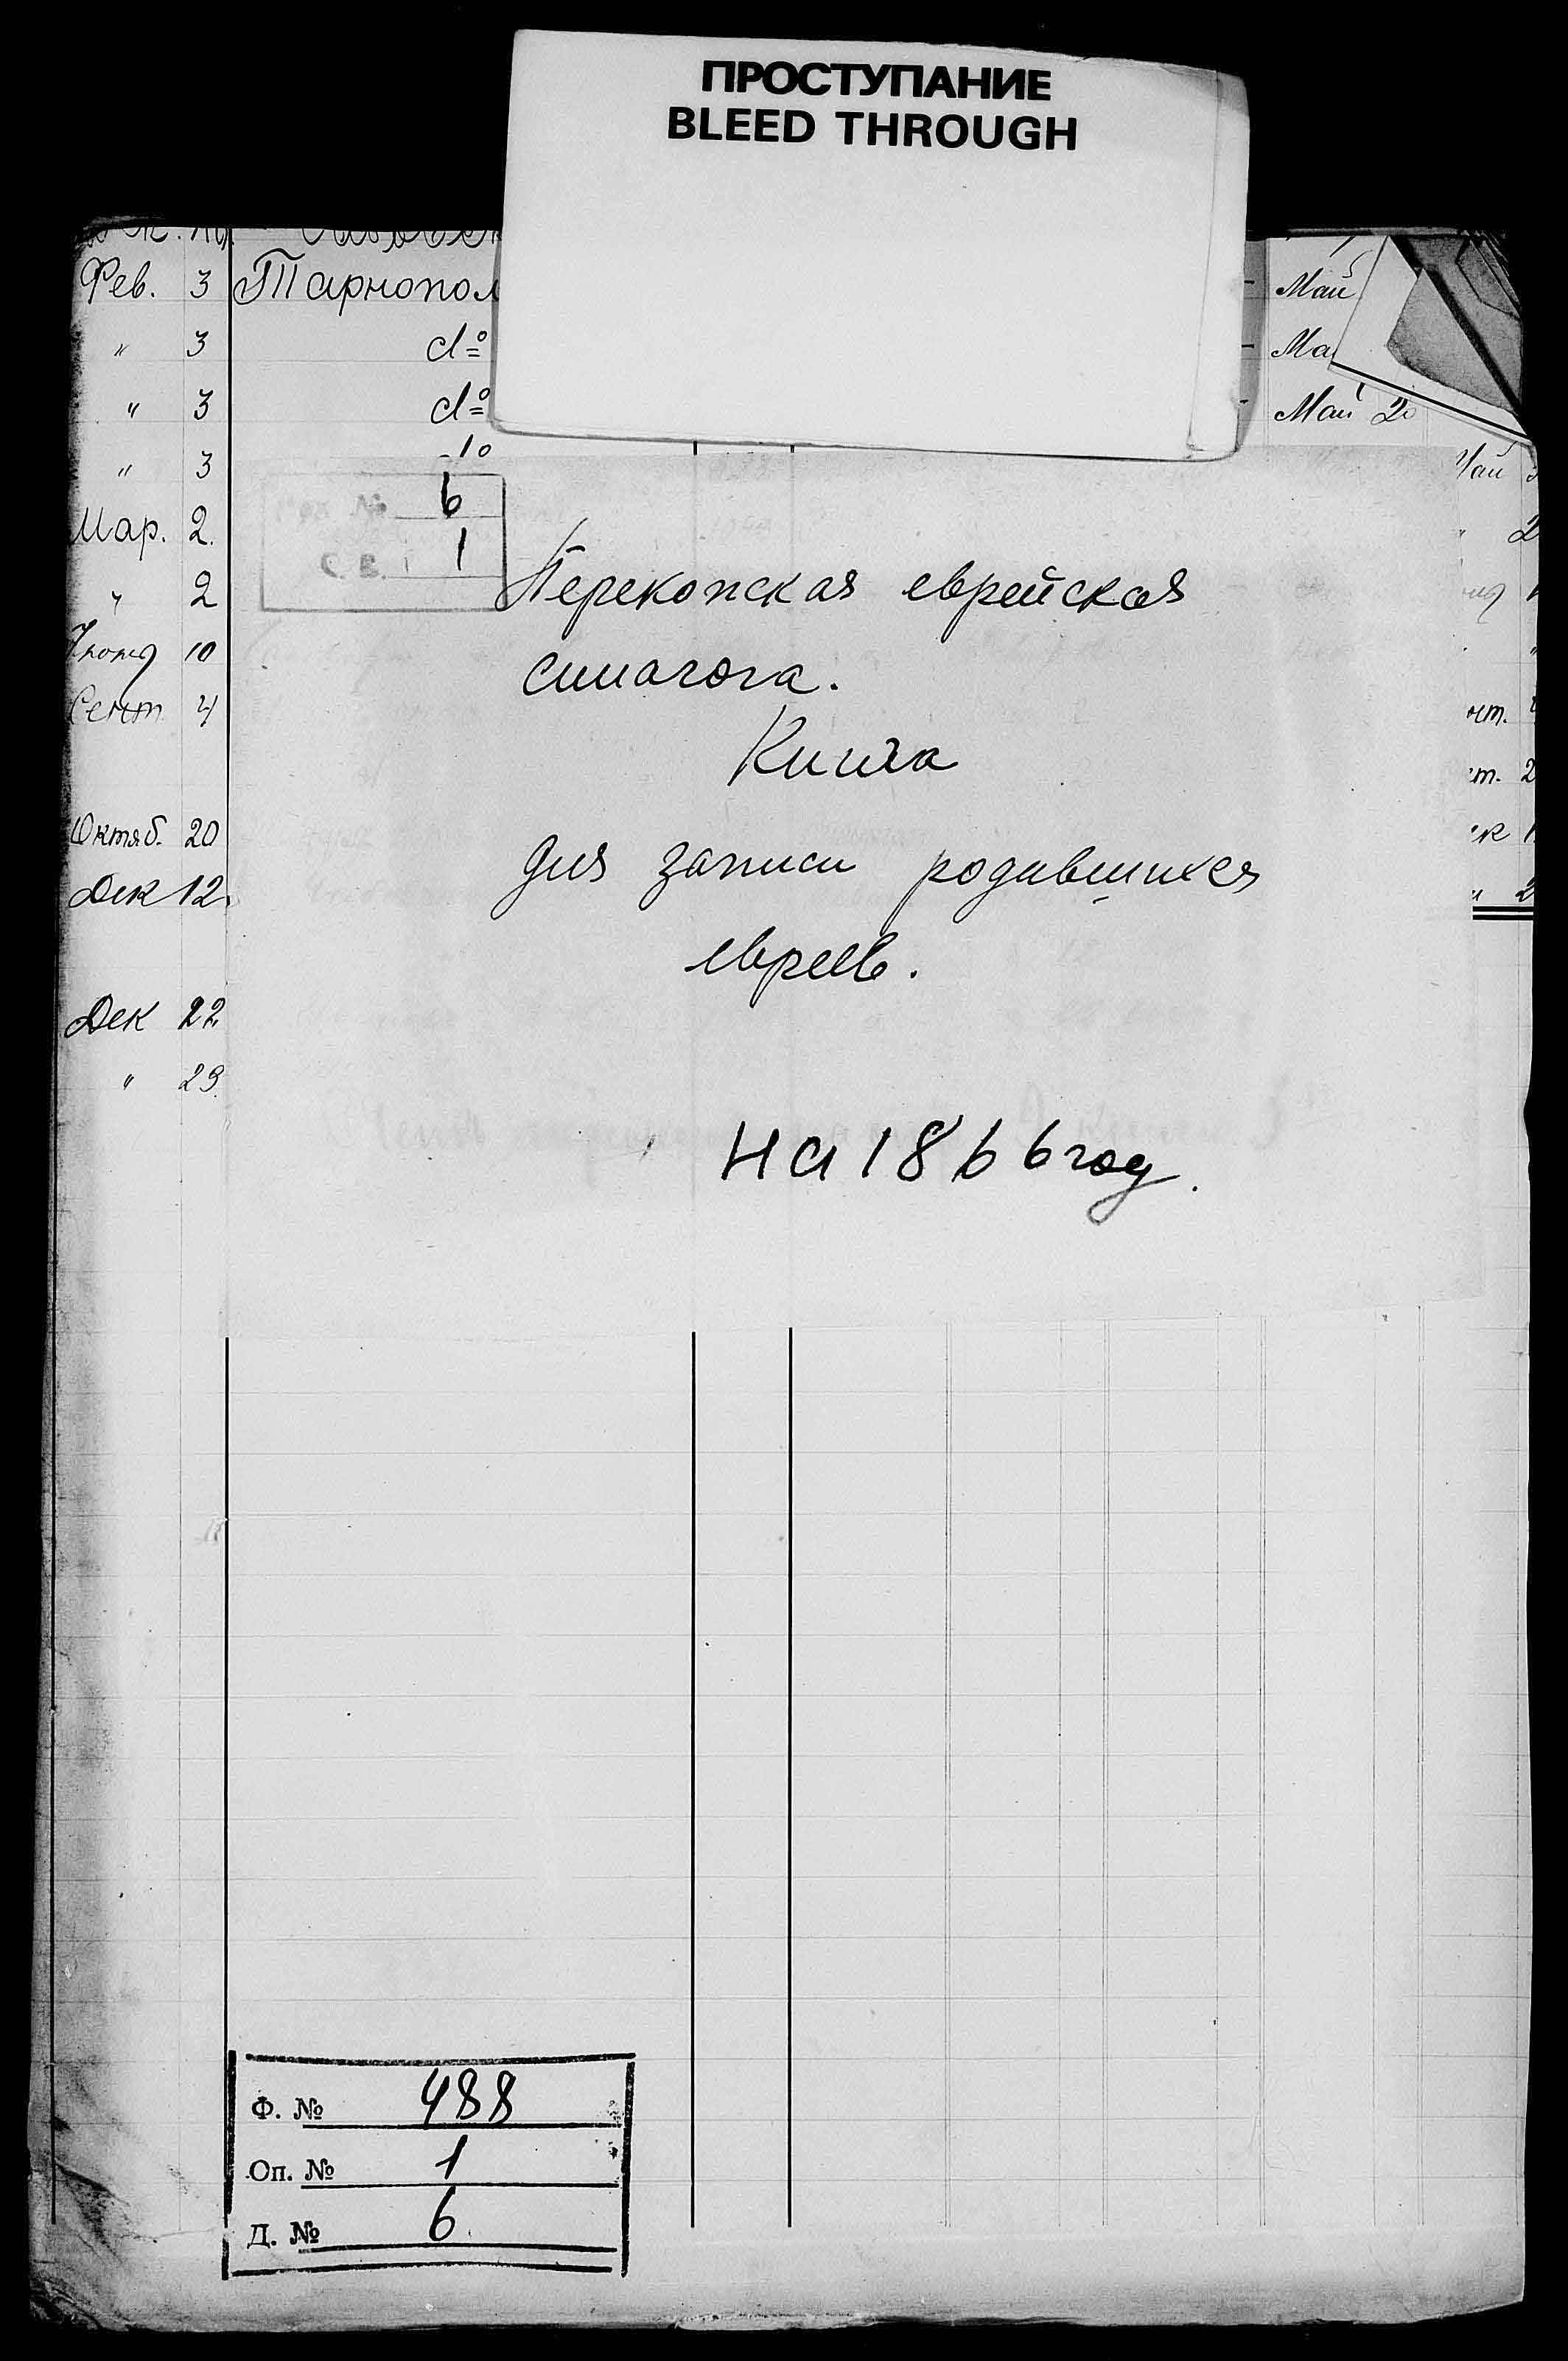 ПРОСТУПАНИЕ
BLEED THROUGH
Фев. 3 Тарнопол Май
" 3 do Ма
" 3 do Май 20
" 3 Май
6
Мар. 2. 2
С. В. 1
" 2
Перекопская еврейская
синагога.
Июня 10
Сент 4
Книга
Октяб. 20
Дек 12.
для записи родившихся
евреев.
Дек 22
" 29.
на 1866 год.
Ф. № 488
Оп. № 1
Д. № 6.